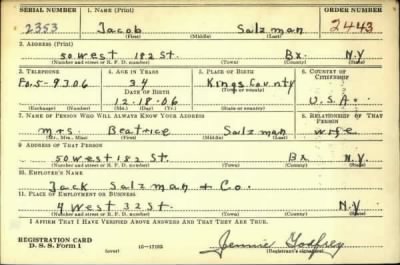 SERIAL NUMBER 1. NAME (Print) ORDER NUMBER
2353 Jacob Salzman 2443
(First) (Middle) (Last)
2. ADDRESS (Print)
50 West 182 St. Bx. N.Y
(Number and street or R. F. D. number) (Town) (County) (State)
3. TELEPHONE 4. AGE IN YEARS 5. PLACE OF BIRTH 6. COUNTRY OF CITIZENSHIP
Fo.5-9306 34 Kings County
DATE OF BIRTH
12-18-06 U.S.A.
(Exchange) (Number) (Mo.) (Day) (Yr.) (State or country)
7. NAME OF PERSON WHO WILL ALWAYS KNOW YOUR ADDRESS 8. RELATIONSHIP OF THAT PERSON
Mrs. Beatrice Salzman wife
(Mr., Mrs., Miss) (First) (Middle) (Last)
9. ADDRESS OF THAT PERSON
50 West 182 St. Bx N.Y.
(Number and street or R. F. D. number) (Town) (County) (State)
10. EMPLOYER'S NAME
Jack Salzman + Co.
11. PLACE OF EMPLOYMENT OR BUSINESS
4 West 32 St. N.Y
(Number and street or R. F. D. number) (Town) (County) (State)
I AFFIRM THAT I HAVE VERIFIED ABOVE ANSWERS AND THAT THEY ARE TRUE.
REGISTRATION CARD
D. S. S. Form 1 (over) 16—17105 Jennie Godfrey
(Registrant's signature)